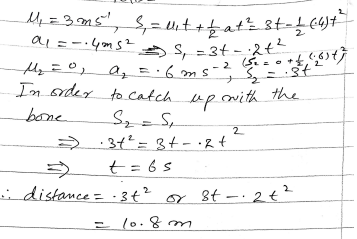 u₁ = 3 ms⁻¹, S₁ = u₁t + ½at² = 3t - ½(.4)t²
a₁ = - .4 ms² ⇒ S₁ = 3t - .2t²
u₂ = 0, a₂ = .6 ms⁻², (S₂ = 0 + ½(.6)t²)
S₂ = .3t²
In order to catch up with the
bone S₂ = S₁
⇒ .3t² = 3t - .2t²
⇒ t = 6 s
∴ distance = .3t² or 3t - .2t²
= 10.8 m